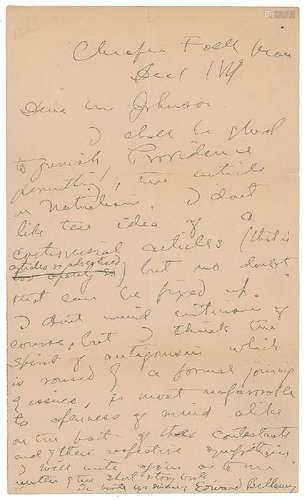 Chicopee Falls Mass
Dear Mr Johnson
I shall be glood
to furnish Providence
permitting, two articles
on Nationalism. I don't
like the idea of a
controversial articles (that is
articles so
) but no doubt
that can be fixed up.
I don't mind criticism of
course, but I think the
spirit of antagonism which
is roused by a formal joining
of issues, is most unfavorable
to openness of mind alike
on the part of the contestants
and of their respective sympathizers
I will write you as to the
matter of the short story
Edward Bellamy